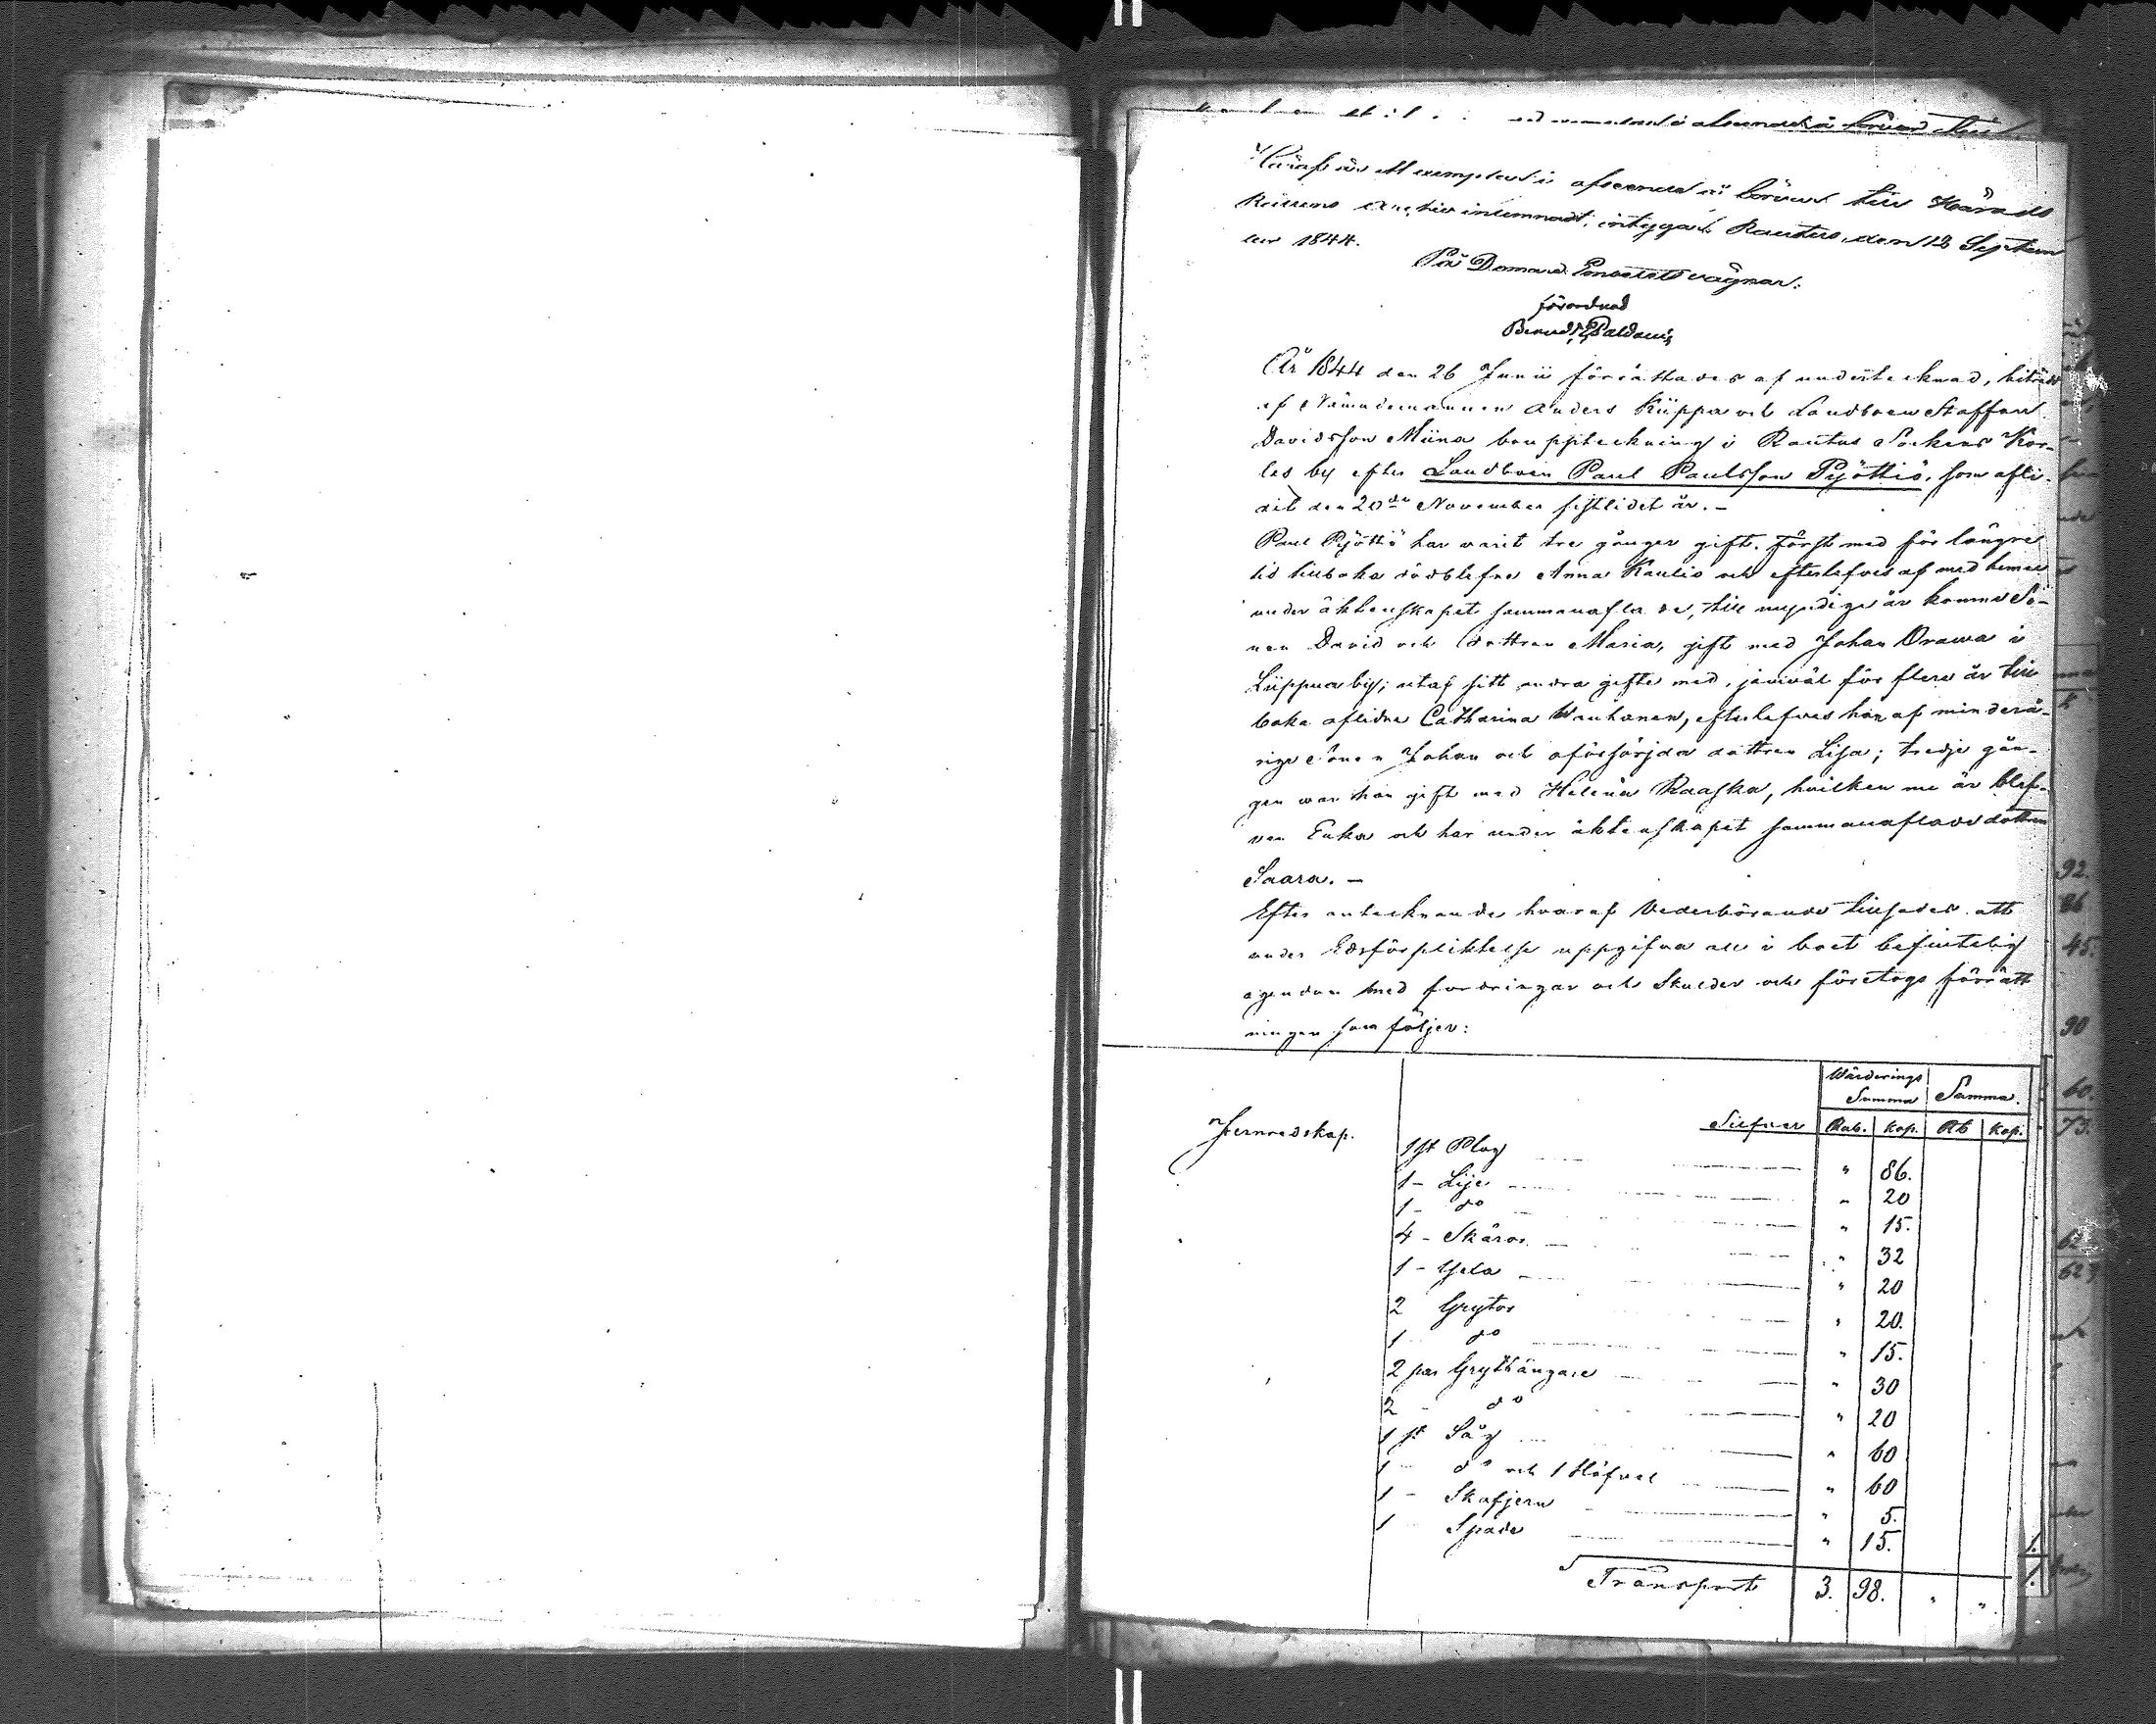 Häraf är ett exemplar i afseende å lösen till Härads
Rättens Archiv inlemnadt, intygar Rautus, den 12 Septem
ber 1844.
På Domare Embetets vägnar.
förordnad
År 1844 den 26 Junii förrättades af undertecknad, biträdd
af Nämndemannen Anders Kiippa och Landboen Staffan
Davidsson Miina bouppteckning i Rautus Sockens Kor-
les by efter Landboen Paul Paulsson Pyöttiö, som afli-
dit den 20de November sistlidet år. -
Paul Pyöttiö har varit tre gånger gift. Först med för längre
tid tillbaka dödblefne Anna Kaulio och efterlefves af med henne
under äktenskapet sammanaflade, till myndige år komne Sö-
nen David och dottren Maria, gift med Johan Orawa i
Liippua by; utaf sitt andra gifte med, jemväl för flere år till
baka aflidne Catharina Wauhonen, efterlefves han af minderå-
rige Sönen Johan och oförsörjda dottren Lisa; tredje gån-
gen war han gift med Helena Raaska, hvilken nu är blef-
ven Enka och har under äktenskapet sammanaflade dottren
Saara. -
Efter antecknande hvaraf Vederbörande tillsades att
under Edsförpliktelse uppgifva all i boet befintelig
egendom med fordringar och Skulder och företogs förrätt
ningen som följer:
Wärderings Summa Summa.
Jernredskap. Silfver Rub. kop. Rb kop.
1 st Plog " 86.
1 - Lije " 20
1 - do " 15.
4 - Skäror " 32
1 - Yxla " 20
2 Grytor " 20.
1 do " 15.
2 par Grythängare " 30
2 - do " 20
1 st Såg " 60
1 - do och 1 Höfvel " 60
1 - Skafjern " 5.
1 Spade " 15.
Transport 3. 98. " "